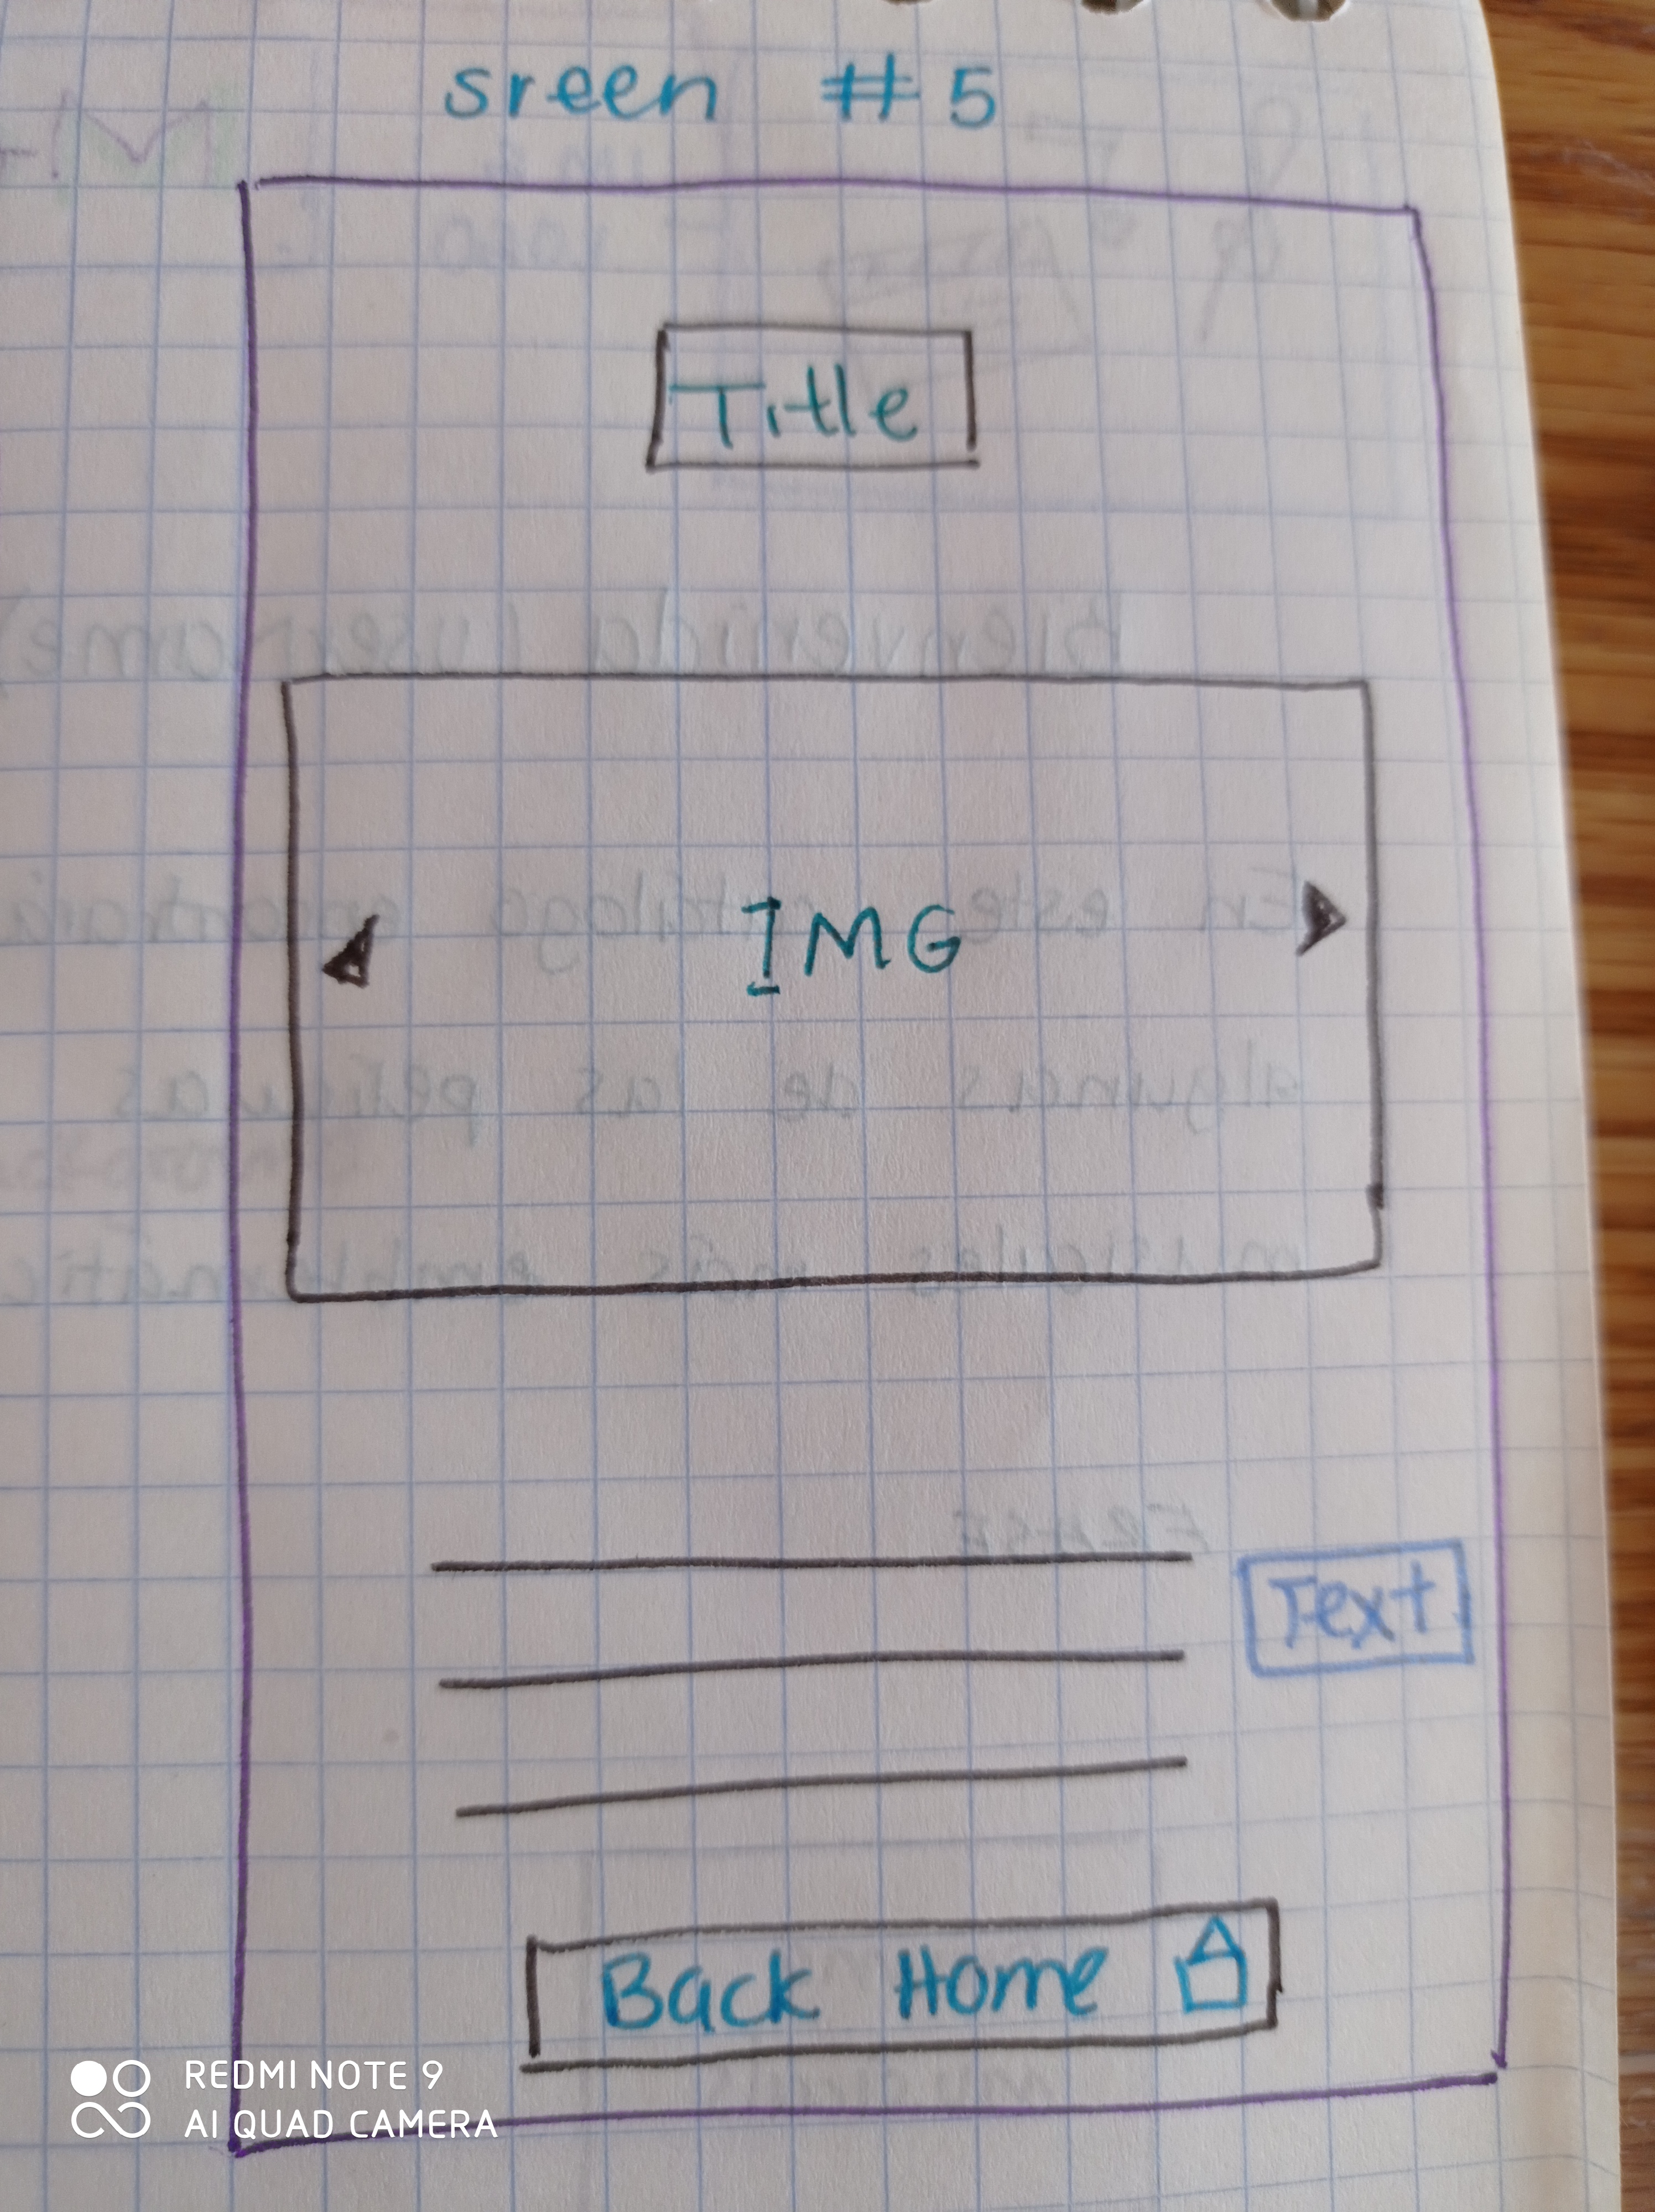 sreen #5
Title
IMG
Text
Back Home
REDMI NOTE 9
AI QUAD CAMERA